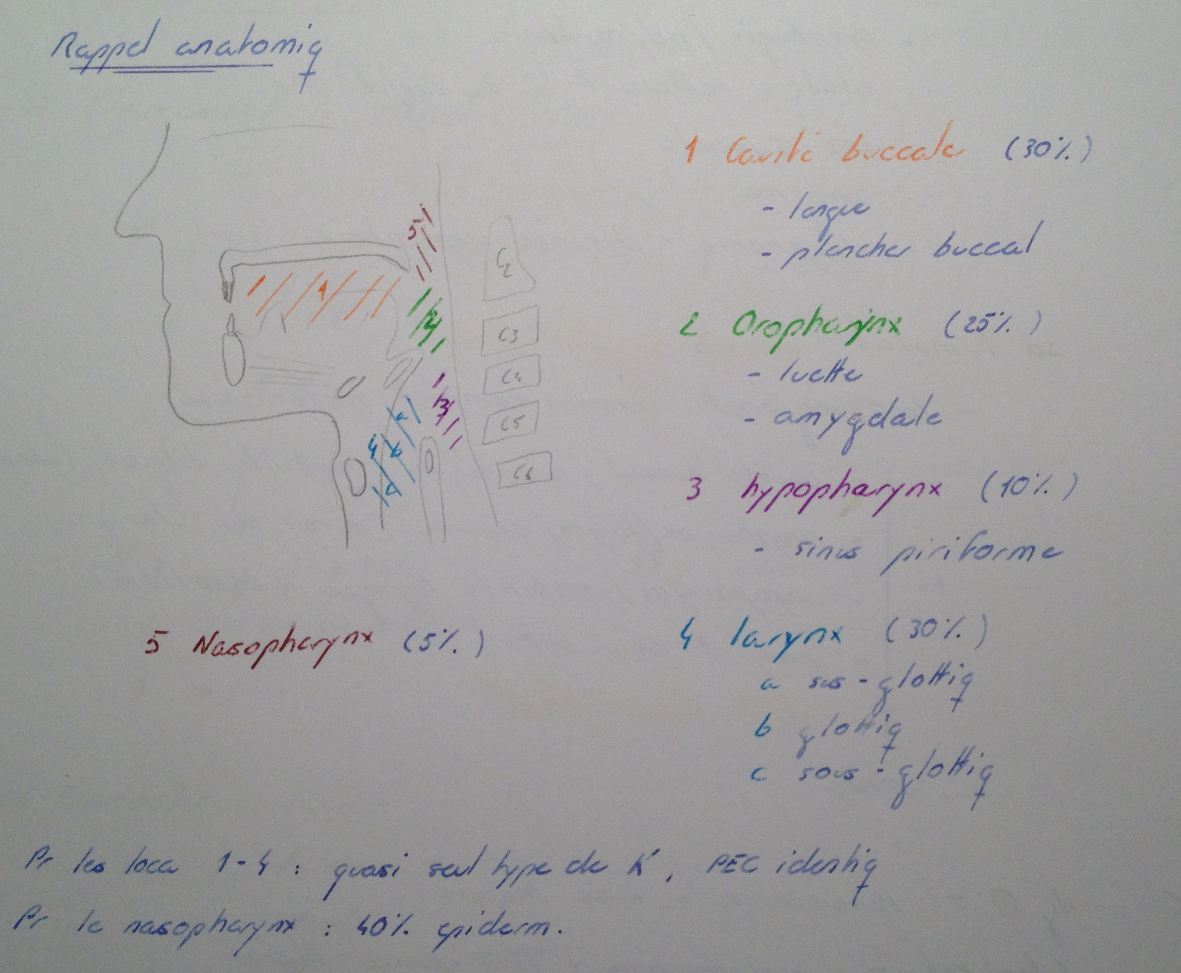 Rappel anatomiq
1 Cavité buccale (30%)
- langue
- plancher buccal
2 Oropharynx (25%)
- luette
- amygdale
3 hypopharynx (10%)
- sinus piriforme
4 larynx (30%)
a sus-glottiq
b glottiq
c sous-glottiq
5 Nasopharynx (5%)
5
1
2
3
4
a
b
C2
C3
C4
C5
C6
Pr les loca 1-4 : quasi seul type de K, PEC identiq
Pr le nasopharynx : 40% epiderm.